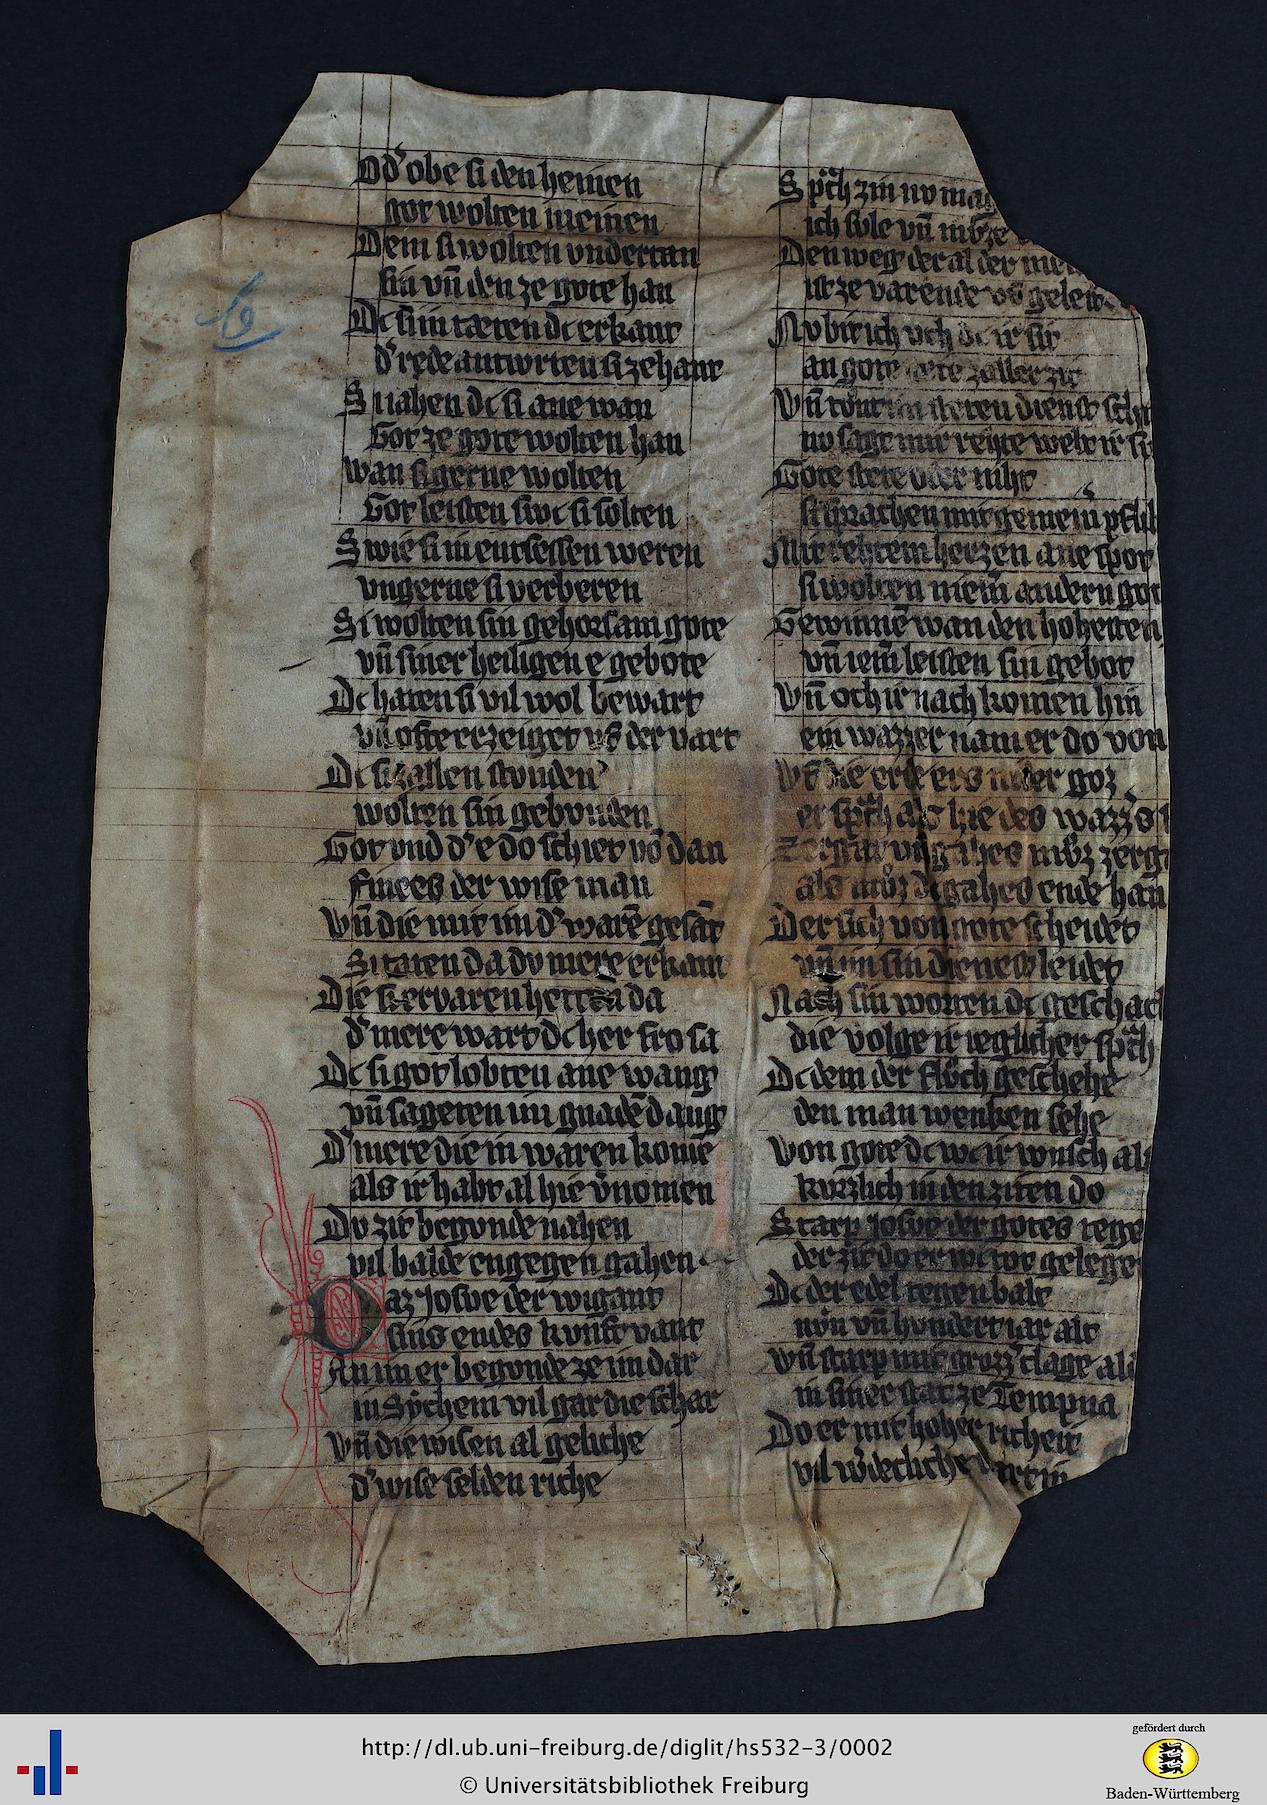 Od' obe si den heinen
got wolten meinen
Dem si wolten vndertan
sin vn̄ den ze gote han
Dc si im tæten dc erkant
d' rede antwrten si zehant
Si iahen dc si ane wan
Got ze gote wolten han
wan si gerne wolten
Got leisten swc si solten
Swie si in entsessen weren
vngerne si verberen
Si wolten sin gehorsam gote
vn̄ siner heiligen e gebote
Dc haten si vil wol bewart
vn̄ ofte erzeiget vf der vart
Dc si zallen stvnden
wolten sin gebvnden
Got vnd d' e do schiet vō dan
finees der wise man
Vn̄ die mit im d' warē gesāt
Si taten da dv mere erkant
Die si ervaren hetten da
d' mere wart dc her fro sa
Dc si got lobten ane wang
vn̄ sageten im gnadē dang
D' mere die in waren kome
als ir habt al hie v'nomen
Dv zit begonde nahen
vil balde engegen gahen
Daz Josve der wigant
sins endes kvnft vant
An im er begonde ze im dar
in Sychem vil gar die schar
Vn̄ die wisen al geliche
d' wise selden riche
Sp'ch zin nv
ich svle vn̄ mvze
Den weg der al der
ist ze varende vf
Nv bit ich vch dc ir sit
an gote stete zaller zit
Vn̄ im steten dienst
nv sagt mir rehte welt ir
Gote stete oder niht
si sprachen mit gemein
Mit rehtem herzen ane spot
si wolten niem̄ andern got
Gewinnē wan den hohesten
vn̄ iem̄ leisten sin gebot
Vn̄ och ir nach komen hin
ein wazzer nam er do von
Vf die erde ers nider goz
er sp'ch als hie des wazz's
vn̄ gahes mvz
als mvz dc gahes ende han
Der sich von gote scheidet
vn̄ im sin dienest leidet
Nach sin worten dc geschach
die volge ir ieglicher sp'ch
Dc dem der flvch geschehe
den man wenken sehe
Von gote dc wc ir wnsch
kvrzlich in den ziten do
Starp Josve der gotes
der zit do er wc
Dc der edel tegen balt
vn̄ hvndert iar alt
Vn̄ starp mit grozz' clage
in siner stat ze Tempna
Do er mit hoher richeit
vil
http://dl.ub.uni-freiburg.de/diglit/hs532-3/0002
© Universitätsbibliothek Freiburg
gefördert durch
Baden-Württemberg